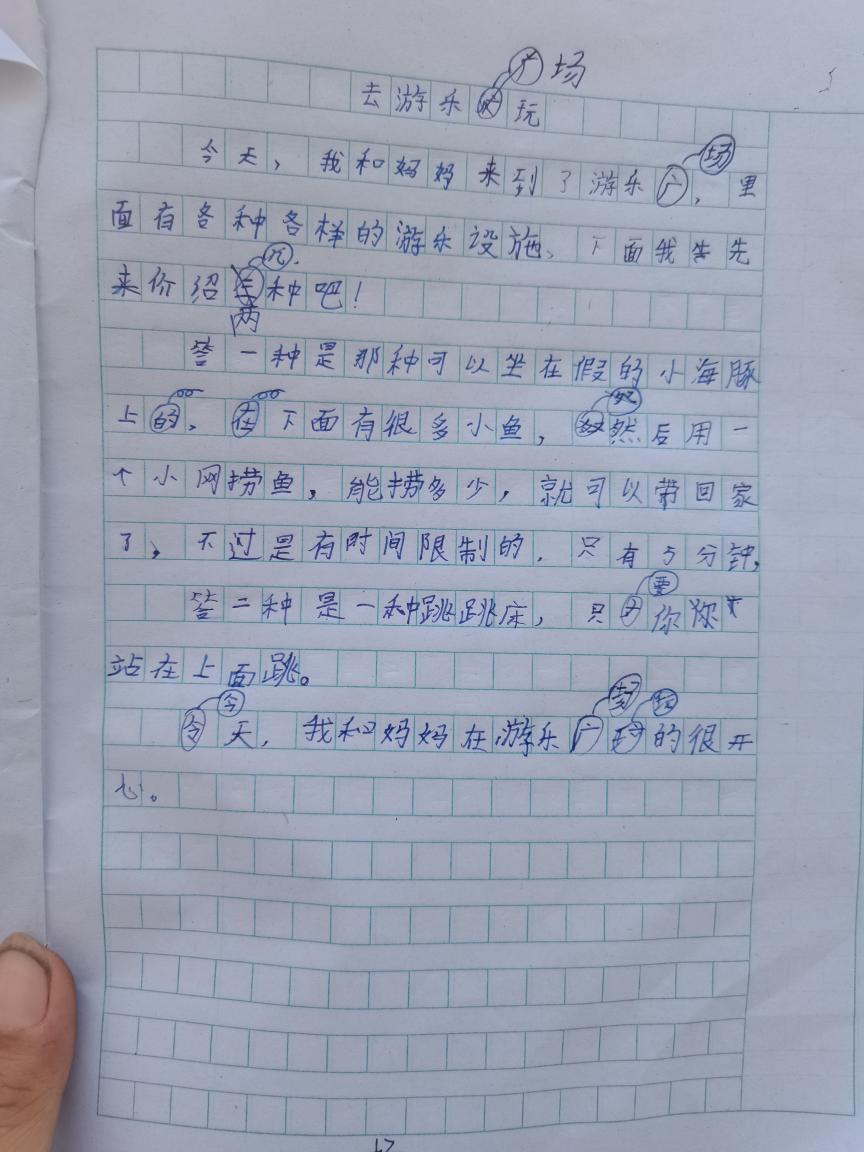 场
去游乐玩
场
今天，我和妈妈来到了游乐广，里
面有各种各样的游乐设施、下面我先
来价绍种吧！
两
答一种是那种可以坐在假的小海豚
上的，在下面有很多小鱼，然后用一
个小网捞鱼，能捞多少，就可以带回家
了，不过是有时间限制的．只有5分钟，
要
答二种是一种跳跳床，只你
站在上面跳。
今
天，我和妈妈在游乐广的很开
心。
17